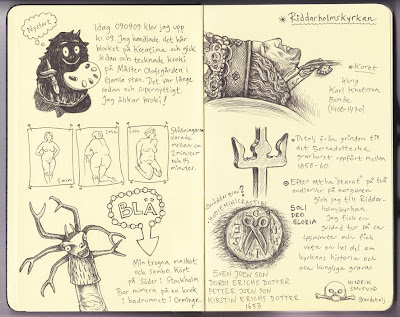 Nyslut!
Idag 090909 klev jag upp
kl. 09. Jag handlade det här
blocket på Kreatima och gick
sedan och tecknade kroki
på Mäster Olofsgården i
Gamla stan. Det var länge
sedan och supernyttigt.
Jag älskar kroki!
5 min
2 min
Ställningarna
varade
mellan ca
2 minuter
och 15
minuter.
BLÄ
Min trogna maskot
och sambo. Köpt
på Söder i Stockholm
Bor numera på en krok
i badrummet i Orminge.
* Riddarholmskyrkan
* Koret
Kung
Karl Knutsson
Bonde.
(1408-1470)
* Detalj från grinden till
det Bernadotteska
gravkoret uppfört mellan
1858-60.
* Efter att ha "stavat" på två
audienser på morgonen
gick jag till Riddar-
holmskyrkan.
Jag fick en
guidad tur på ca
45 minuter och fick
veta en hel del om
kyrkans historia och
ska kungliga gravar.
Skräddargrav?
SOLI
DEO
GLORIA
SVEN JOEN SON
JORDI ERICHS DOTTER
PETTER JOEN SON
KIRSTIN ERICHS DOTTER
1653
HINDRIK
gravdetalj